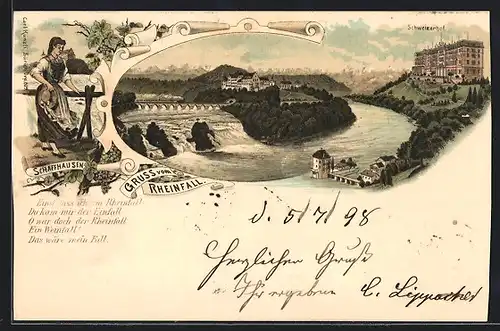 Schweizerhof.
SCHAFFHAUSEN
GRUSS VOM
RHEINFALL
Einst sass ich am Rheinfall
Da kam mir der Einfall
O wär doch der Rheinfall
Ein Weinfall!
Das wäre mein Fall.
d. 5/7/98
Herzlichen Gruß
Ihr ergebener
C. Lippacher